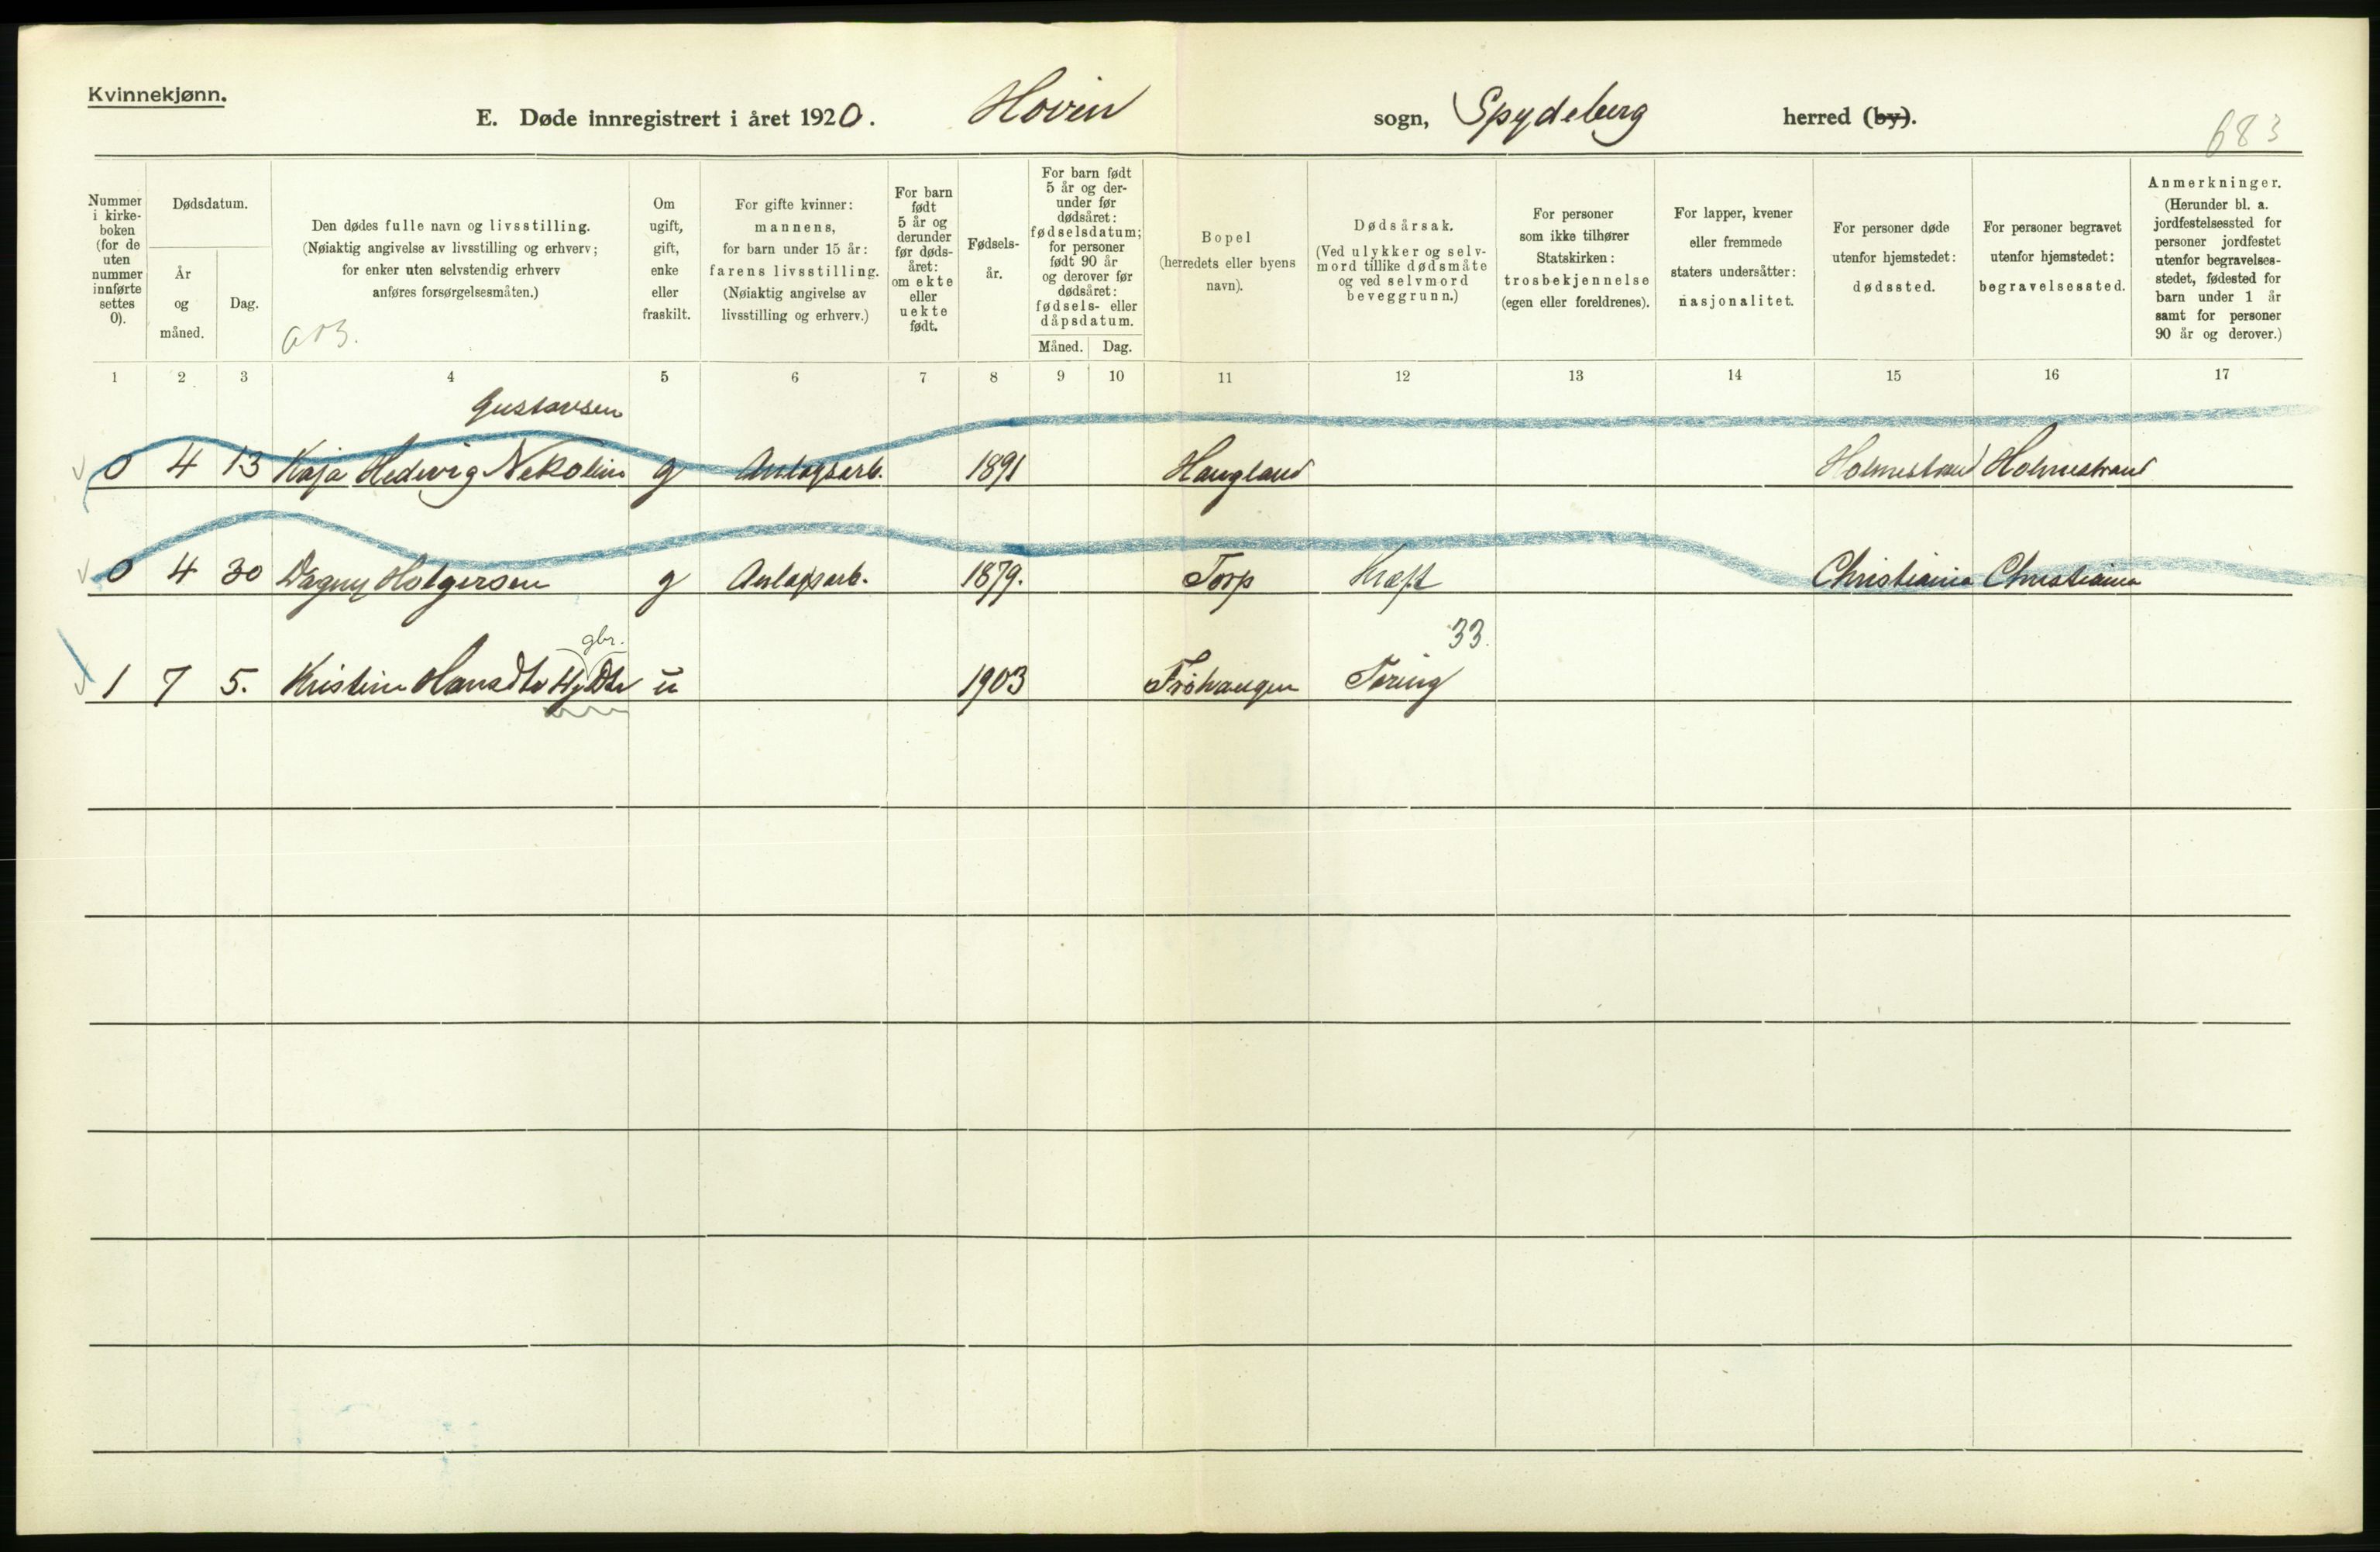 Kvinnekjønn.
E. Døde innregistrert i året 1920. Hovin sogn, Spydeberg herred (by).
683
Nummer i kirke- boken (for de uten nummer innførte settes 0).
Dødsdatum.
År og måned.
Dag.
Den dødes fulle navn og livsstilling.
(Nøiaktig angivelse av livsstilling og erhverv;
for enker uten selvstendig erhverv
anføres forsørgelsesmåten.)
Om ugift, gift, enke eller fraskilt.
For gifte kvinner:
mannens,
for barn under 15 år:
farens livsstilling.
(Nøiaktig angivelse av
livsstilling og erhverv.)
For barn født 5 år og derunder før døds- året: om ekte eller uekte født.
Fødsels- år.
For barn født 5 år og der- under før dødsåret: fødselsdatum; for personer født 90 år og derover før dødsåret: fødsels- eller dåpsdatum.
Måned. Dag.
Bopel
(herredets eller byens
navn).
Dødsårsak.
(Ved ulykker og selv-
mord tillike dødsmåte
og ved selvmord
beveggrunn.)
For personer
som ikke tilhører
Statskirken:
trosbekjennelse
(egen eller foreldrenes).
For lapper, kvener
eller fremmede
staters undersåtter:
nasjonalitet.
For personer døde
utenfor hjemstedet:
dødssted.
For personer begravet
utenfor hjemstedet:
begravelsessted.
Anmerkninger.
(Herunder bl. a.
jordfestelsessted for
personer jordfestet
utenfor begravelses-
stedet, fødested for
barn under 1 år
samt for personer
90 år og derover.)
1 2 3 4 5 6 7 8 9 10 11 12 13 14 15 16 17
Gustavsen
0 4 13 Kaja Hedevig Nekoline g Anlægsarb. 1891 Haugland Holmestrand Holmestrand
0 4 30 Dagny Holgersen g Anlægsarb. 1879. Torp Kræft Christiania Christiania
gbr. 33.
1 7 5. Kristine Hansdtr u 1903 Frøhaugen Tæring